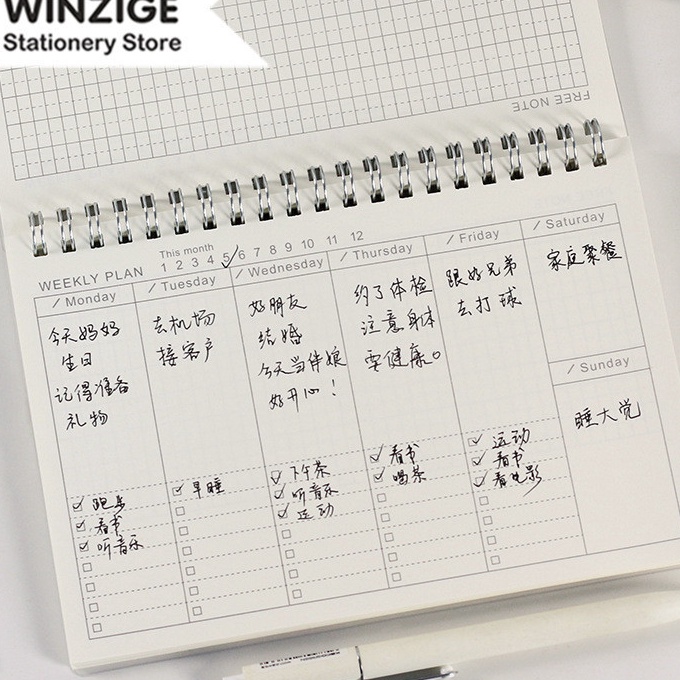 WINZIGE
Stationery Store
FREE NOTE
WEEKLY PLAN
This month
1 2 3 4 5 6 7 8 9 10 11 12
/ Monday
今天妈妈
生日
记得准备
礼物
跑步
看书
听音乐
/ Tuesday
去机场
接客户
早睡
/ Wednesday
好朋友
结婚
今天当伴娘
好开心!
下午茶
听音乐
运动
/ Thursday
约了体检
注意身体
要健康。
看书
喝茶
/ Friday
跟好兄弟
去打球
运动
看书
看电影
/ Saturday
家庭聚餐
/ Sunday
睡大觉